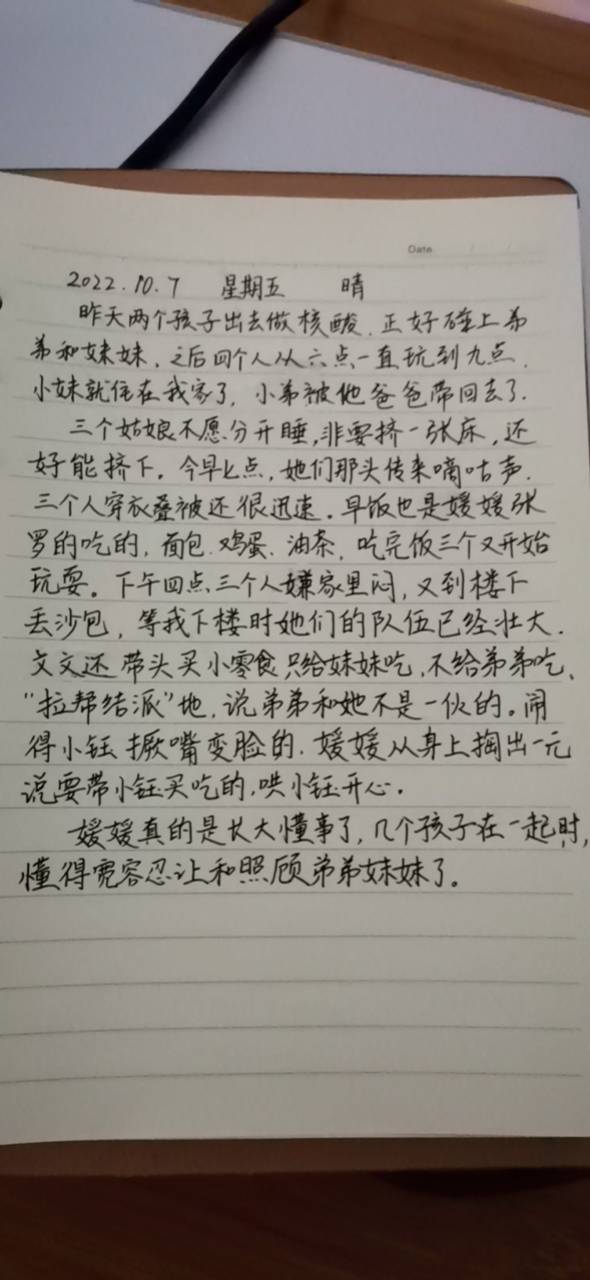 Date
2022.10.7 星期五 晴
昨天两个孩子出去做核酸,正好碰上弟
弟和妹妹,之后四个人从六点一直玩到九点,
小妹就住在我家了,小弟被他爸爸带回去了.
三个姑娘不愿分开睡,非要挤一张床,还
好能挤下。今早七点,她们那头传来嘀咕声.
三个人穿衣叠被还很迅速。早饭也是媛媛张
罗的吃的,面包、鸡蛋、油茶,吃完饭三个又开始
玩耍。下午四点三个人嫌家里闷,又到楼下
丢沙包,等我下楼时她们的队伍已经壮大.
文文还带头买小零食只给妹妹吃,不给弟弟吃、
"拉帮结派"地,说弟弟和她不是一伙的。闹
得小钰撅嘴变脸的.媛媛从身上掏出一元
说要带小钰买吃的,哄小钰开心。
媛媛真的是长大懂事了,几个孩子在一起时,
懂得宽容忍让和照顾弟弟妹妹了。